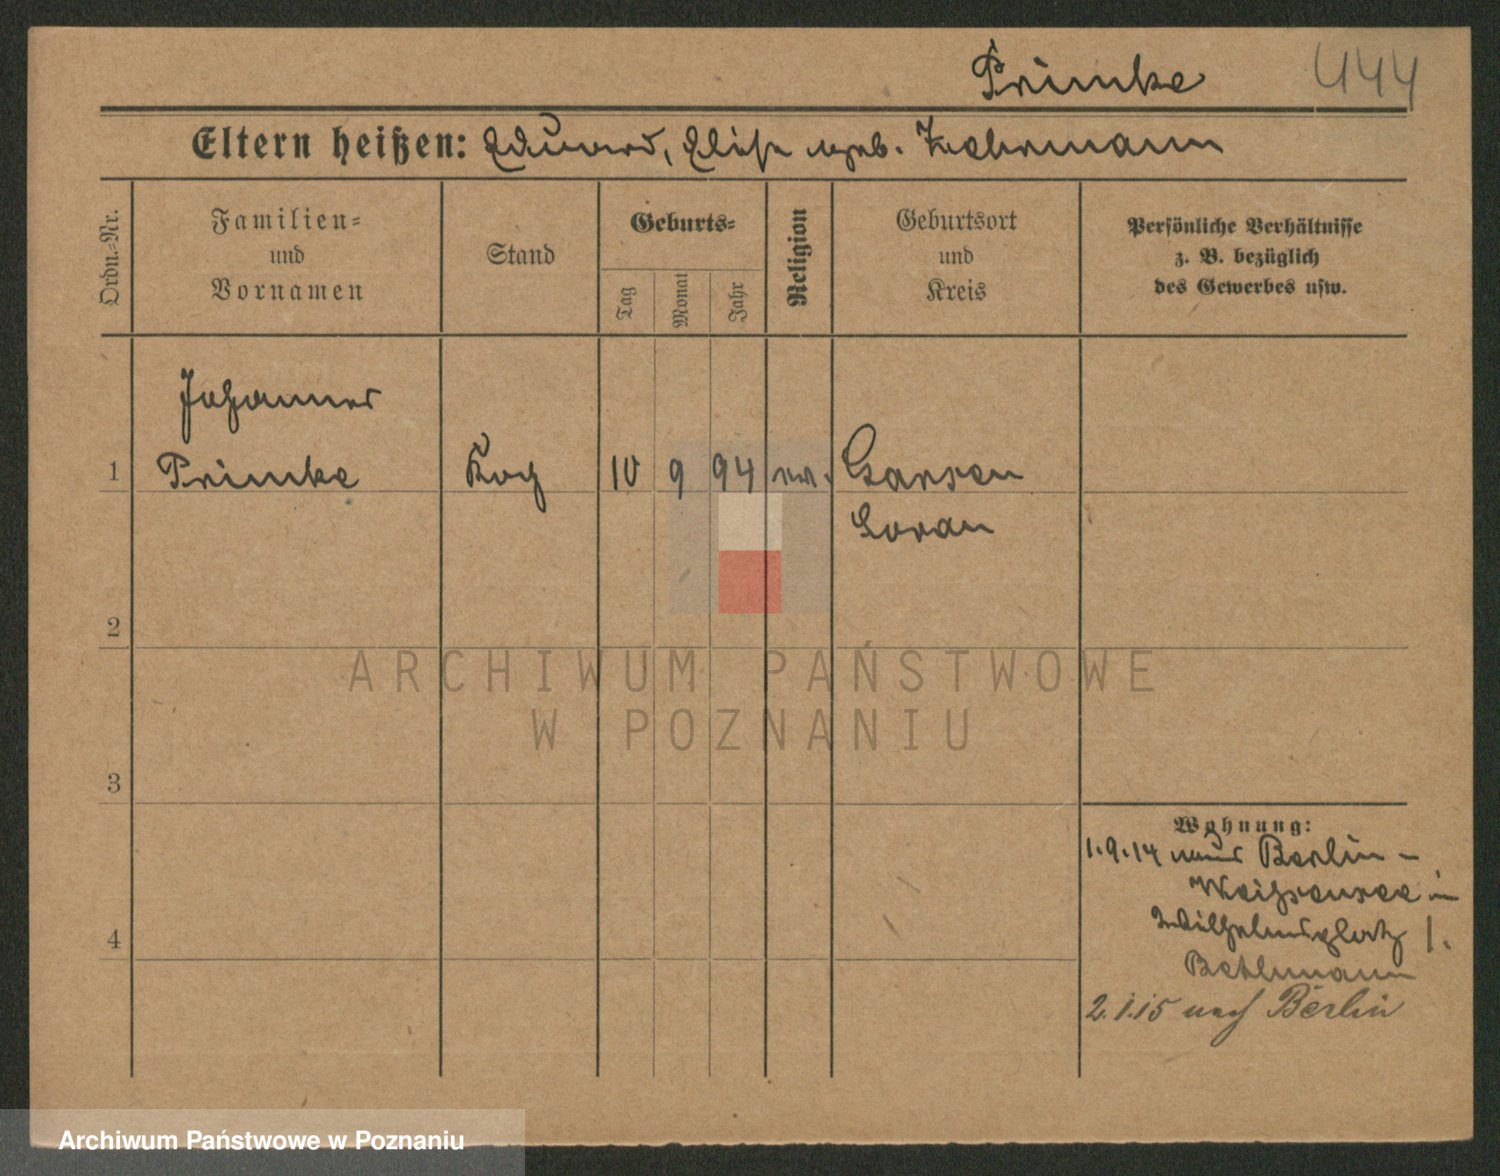 Primke 444
Eltern heißen: Eduard, Elise geb. Zechmann
Ordn.-Nr.
Familien-
und
Vornamen
Stand
Geburts-
Tag
Monat
Jahr
Religion
Geburtsort
und
Kreis
Persönliche Verhältnisse
z. B. bezüglich
des Gewerbes usw.
Johannes
1 Primke Koch 10 9 94 ev. Garsen
Soran
2
3
4
Wohnung:
1.9.14 aus Berlin-
Weißensee in
Wilhelmsplatz 1.
Bethmann
2.1.15 nach Berlin
ARCHIWUM PAŃSTWOWE
W POZNANIU
Archiwum Państwowe w Poznaniu